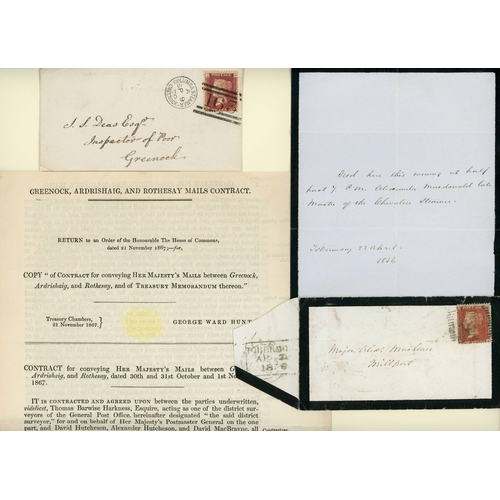 GREENOCK & ARDRISHAIG
J. J. Deas Esqr.
Inspector of Poor
Greenock
GREENOCK, ARDRISHAIG, AND ROTHESAY MAILS CONTRACT.
RETURN to an Order of the Honourable The House of Commons,
dated 21 November 1867;—for,
COPY "of CONTRACT for conveying HER MAJESTY'S MAILS between Greenock,
Ardrishaig, and Rothesay, and of TREASURY MEMORANDUM thereon."
Treasury Chambers,
21 November 1867.
GEORGE WARD HUNT
CONTRACT for conveying HER MAJESTY'S MAILS between
Ardrishaig, and Rothesay, dated 30th and 31st October and 1st
1867.
IT IS CONTRACTED AND AGREED UPON between the parties underwritten,
videlicet, Thomas Barwise Harkness, Esquire, acting as one of the district sur-
veyors of the General Post Office, hereinafter designated "the said district
surveyor," for and on behalf of Her Majesty's Postmaster General on the one
part, and David Hutcheson, Alexander Hutcheson, and David MacBrayne, all
Died here this evening at half
past 7 P.M. Alexander Macdonald late
Master of the Chevalier Steamer.
Tobermory 22 April
1856
TOBERMO
Major
Millport